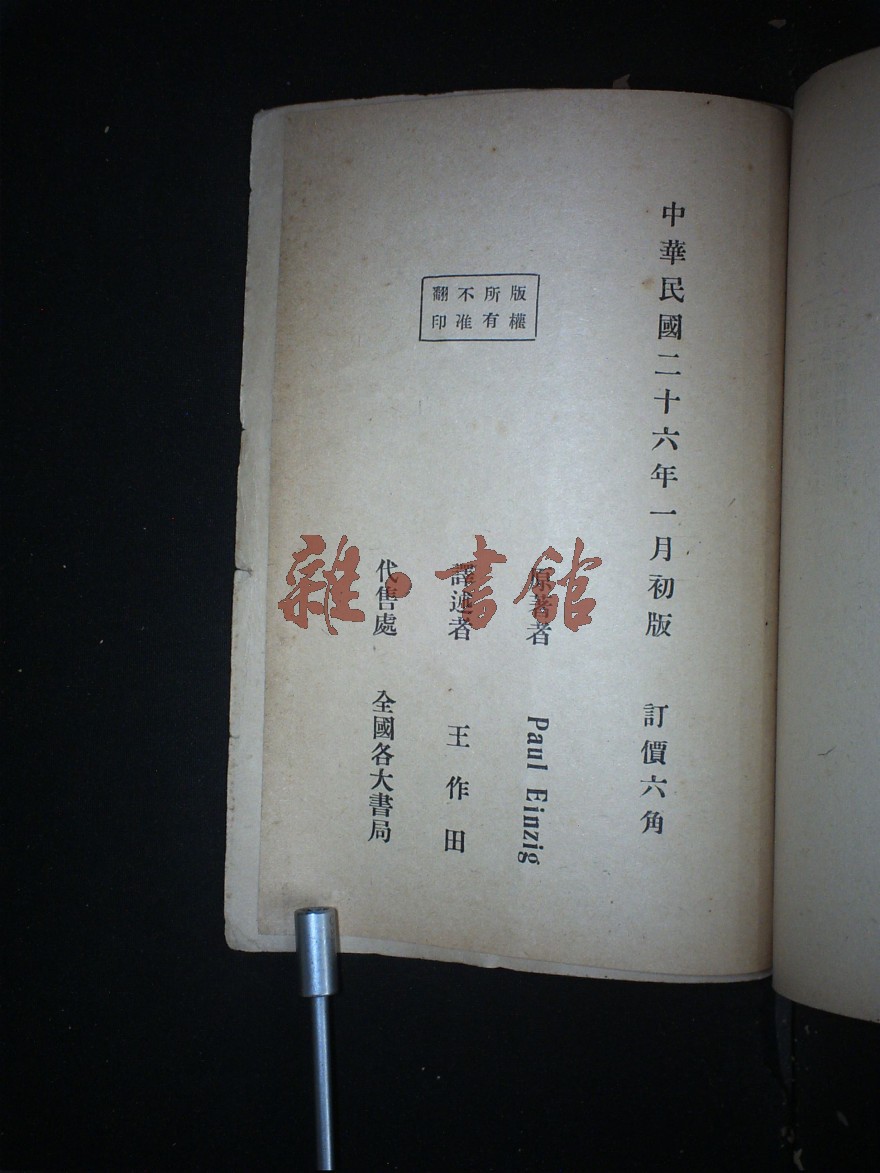 中華民國二十六年一月初版 訂價六角
原著者 Paul Einzig
譯述者 王作田
代售處 全國各大書局
版權
所有
不准
翻印
雜·書館